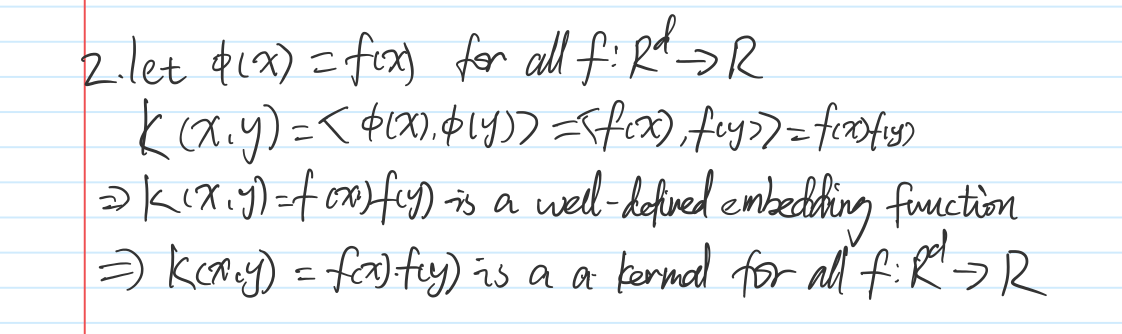 2. let φ(x) = f(x) for all f: R^d → R
K(x,y) = <φ(x), φ(y)> = <f(x), f(y)> = f(x)f(y)
⇒ K(x,y) = f(x)f(y) is a well-defined embedding function
⇒ K(x,y) = f(x)·f(y) is a a kernal for all f: R^d → R